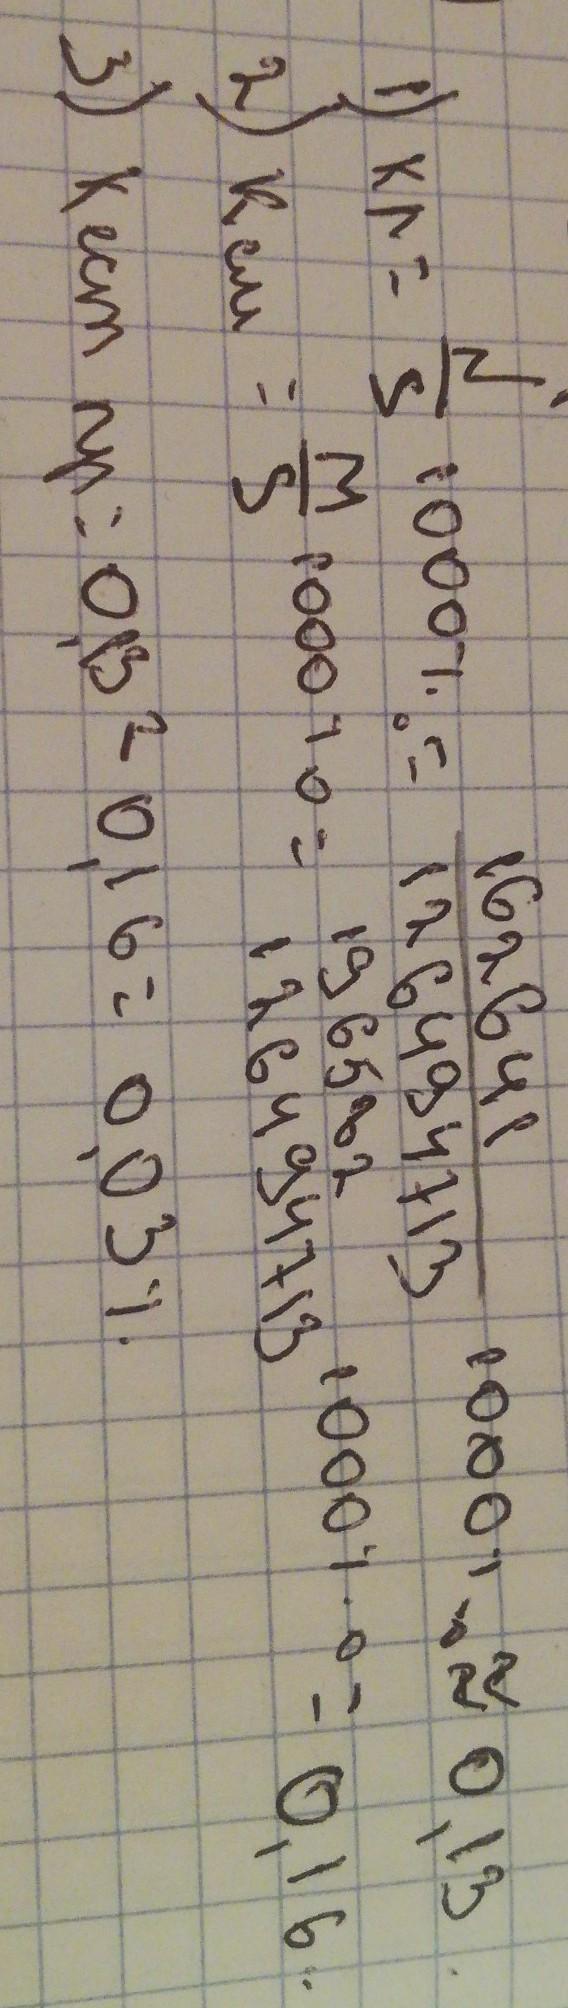 1) Кр = N/S · 1000‰ = 162641/126494713 1000‰ ≈ 0,13
2) Ксм = M/S 1000‰ = 196582/126494713 1000‰ = 0,16
3) Кест пр = 0,13 - 0,16 = 0,03%